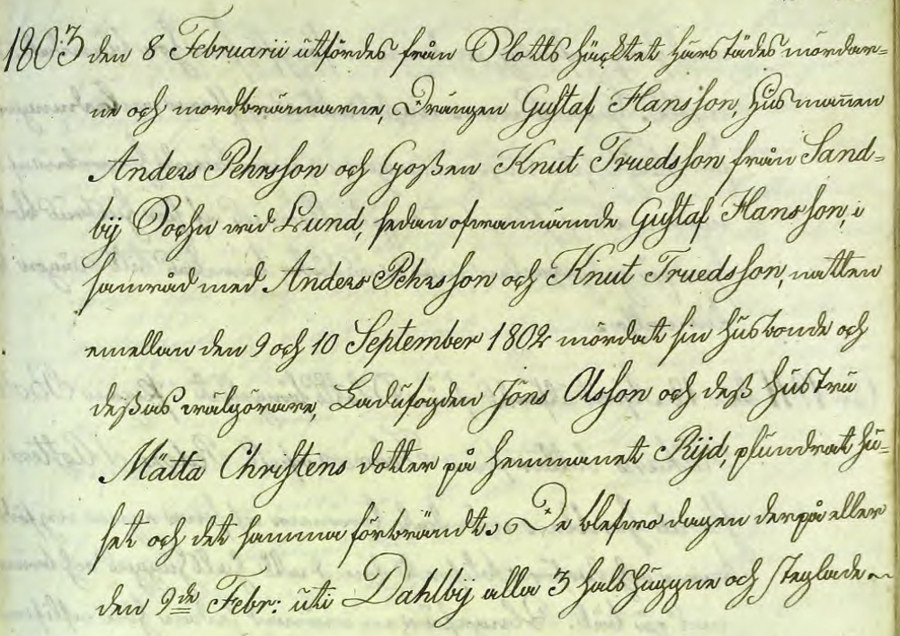 1803 den 8 Februarii utfördes från Slotts häcktet härstädes mördar=
ne och mordbrännarne, Drängen Gustaf Hansson, Husmannen
Anders Pehrsson och Gossen Knut Truedsson från Sand=
by Sochn wid Lund, sedan ofvannämde Gustaf Hansson, i
samråd med Anders Pehrsson och Knut Truedsson, natten
emellan den 9 och 10 September 1802 mördat sin husbonde och
dessas wälgörare, Ladufogden Jöns Olsson och dess hustru
Mätta Christens dotter på hemmanet Rijd, plundrat hu=
set och det samma förbrändt. De blefwo dagen derpå eller
den 9de Febr: uti Dahlbij alla 3 halshuggne och steglade